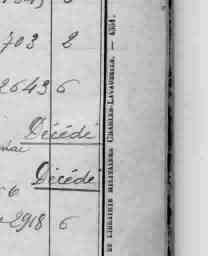 703 2
2643 6
Décédé
Décédé
6
2918 6
ET LIBRAIRIE MILITAIRES CHARLES-LAVAUZELLE. — 4354.